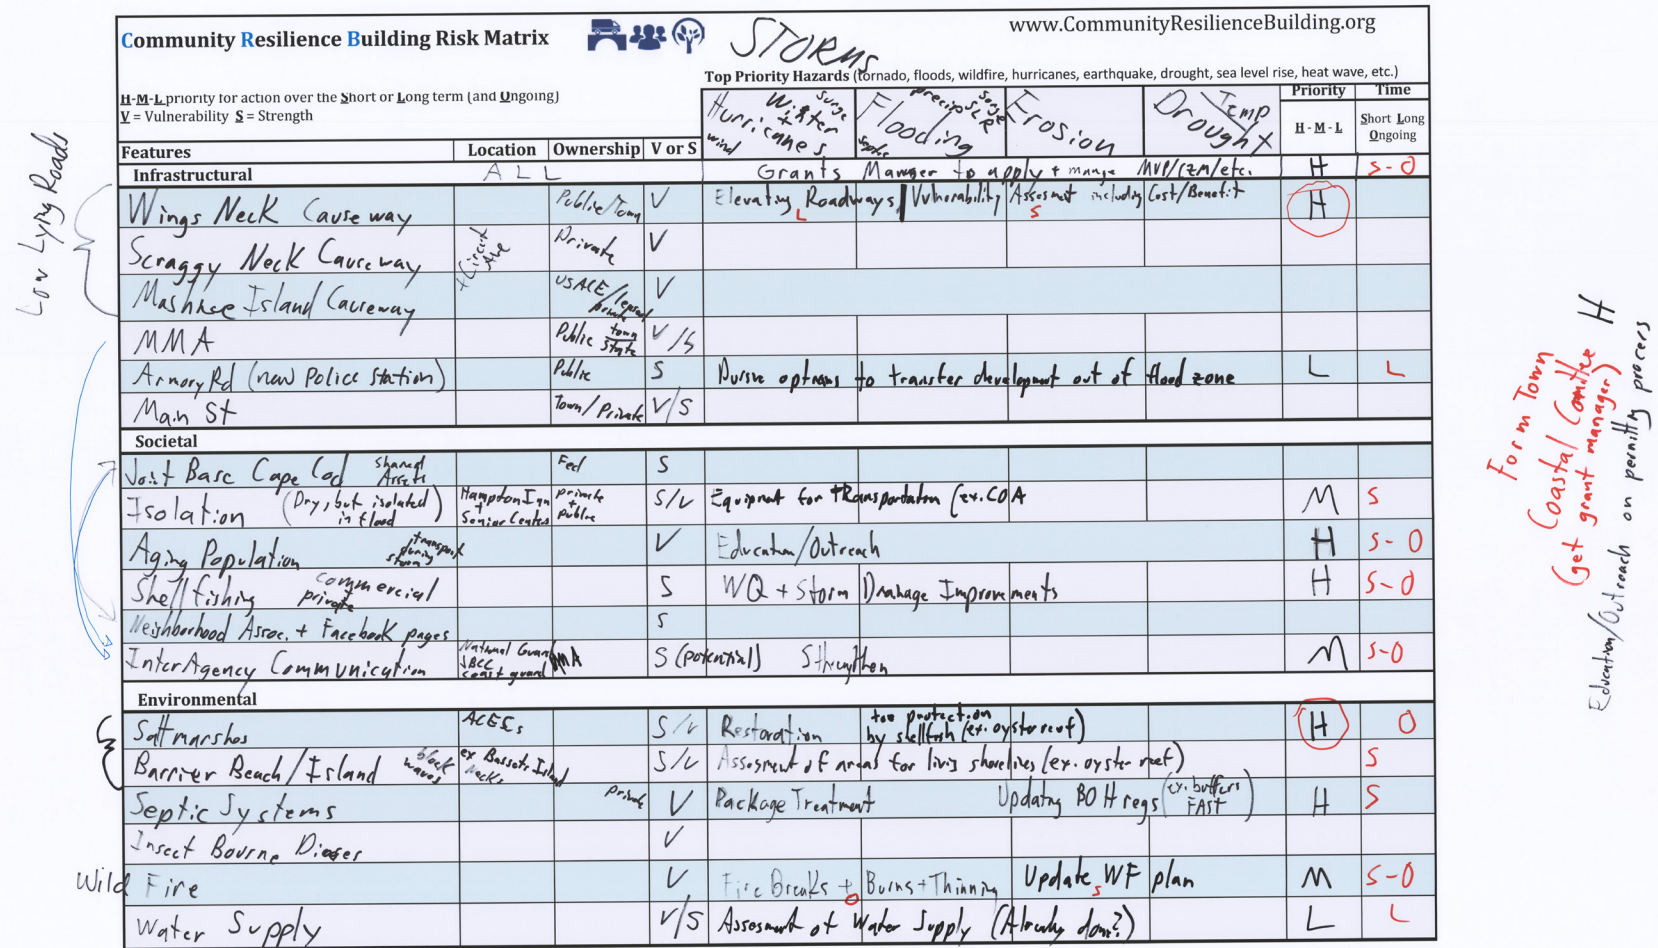 Community Resilience Building Risk Matrix
STORMS
www.CommunityResilienceBuilding.org
Top Priority Hazards (tornado, floods, wildfire, hurricanes, earthquake, drought, sea level rise, heat wave, etc.)
H-M-L priority for action over the Short or Long term (and Ongoing)
V = Vulnerability S = Strength
Hurricanes + Winter surge wind
Flooding precip surge SLR septic
Erosion
Drought Temp
Priority Time
H - M - L Short Long Ongoing
Features Location Ownership V or S
Infrastructural ALL Grants Manger to apply + mange MVP/CZM/etc. H S-O
Low Lying Roads
Wings Neck Causeway Public/Town V Elevating Roadways L Vulnerability Assesment including Cost/Benefit S H
Scraggy Neck Causeway + Circuit Ave Private V
Mashnee Island Causeway USACE/leased private V
MMA Public town state V/S
Armory Rd (new Police Station) Public S Pursue options to transfer development out of flood zone L L
Main St Town/Private V/S
Societal
Joint Base Cape Cod shared Assets Fed S
Isolation (Dry, but isolated in flood) Hampton Inn + Senior Center private + public S/V Equipment for TRansportation (ex. COA M S
Aging Population transport during storm V Education/Outreach H S-O
Shellfishing commercial private S WQ + Storm Drainage Improvements H S-O
Neighborhood Assoc. + Facebook pages S
InterAgency Communication National Guard JBCC coast guard MMA S (potential) Strengthen M S-O
Environmental
Saltmarshes ACECs S/V Restoration toe protection by shellfish (ex. oyster reef) H O
Barrier Beach/Island block waves ex Bassets Island Necks S/V Assesment of areas for living shorelines (ex. oyster reef) S
Septic Systems private V Package Treatment Updating BOH regs (ex. buffers FAST) H S
Insect Bourne V
Wild Fire V Fire Breaks + Burns + Thinning O Update WF plan S M S-O
Water Supply V/S Assesment of Water Supply (Already done?) L L
Form Town
Coastal Comittee H
(get grant manager)
Education/Outreach on permitting process